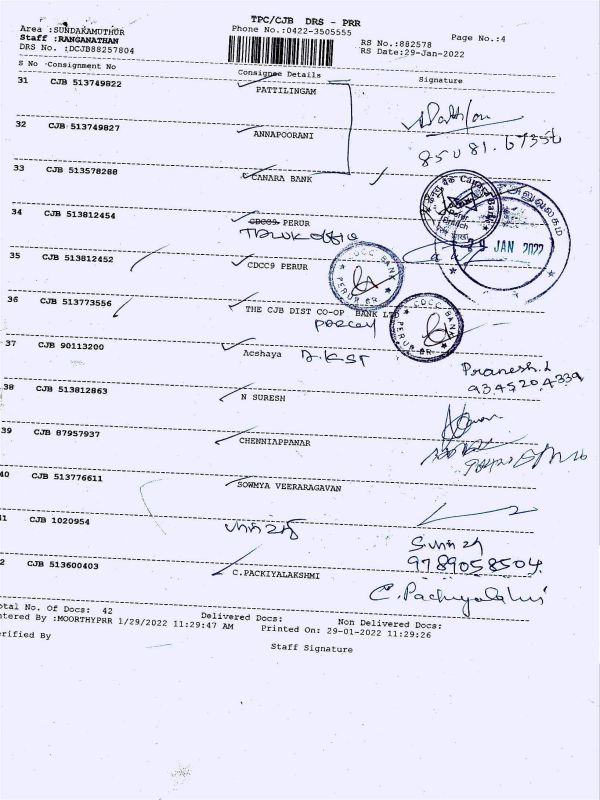 TPC/CJB DRS - PRR
Area :SUNDAKAMUTHUR
Phone No.:0422-3505555
Page No.:4
Staff :RANGANATHAN
RS No.:882578
DRS No. :DCJB88257804
RS Date:29-Jan-2022
S No Consignment No Consignee Details Signature
31 CJB 513749822 PATTILINGAM
32 CJB 513749827 ANNAPOORANI
33 CJB 513578288 CANARA BANK
Canara Bank
Branch
34 CJB 513812454 CDCC9 PERUR
JAN 2022
35 CJB 513812452 CDCC9 PERUR
CDCC BANK
PERUR BR
36 CJB 513773556 THE CJB DIST CO-OP BANK LTD
CDCC BANK
PERUR BR
37 CJB 90113200 Acshaya
Pranesh.L
38 CJB 513812863 N SURESH
39 CJB 87957937 CHENNIAPPANAR
40 CJB 513776611 SOWMYA VEERARAGAVAN
41 CJB 1020954
9789058504
2 CJB 513600403 C.PACKIYALAKSHMI
C. Packiyalakshmi
otal No. Of Docs: 42 Delivered Docs: Non Delivered Docs:
ntered By :MOORTHYPRR 1/29/2022 11:29:47 AM Printed On: 29-01-2022 11:29:26
erified By
Staff Signature